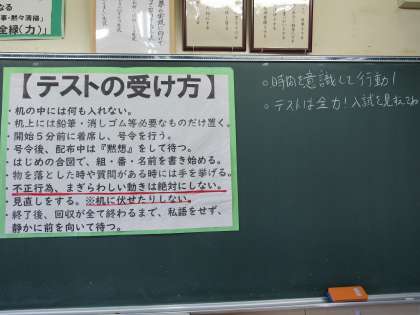 なる
事・黙々清掃」
全緑(力)」
【テストの受け方】
・机の中には何も入れない。
・机上には鉛筆・消しゴム等必要なものだけ置く。
・開始5分前に着席し、号令を行う。
・号令後、配布中は『黙想』をして待つ。
・はじめの合図で、組・番・名前を書き始める。
・物を落とした時や質問がある時には手を挙げる。
・不正行為、まぎらわしい動きは絶対にしない。
・見直しをする。※机に伏せたりしない。
・終了後、回収が全て終わるまで、私語をせず、
静かに前を向いて待つ。
○時間を意識して行動!
○テストは全力!入試を見すえて